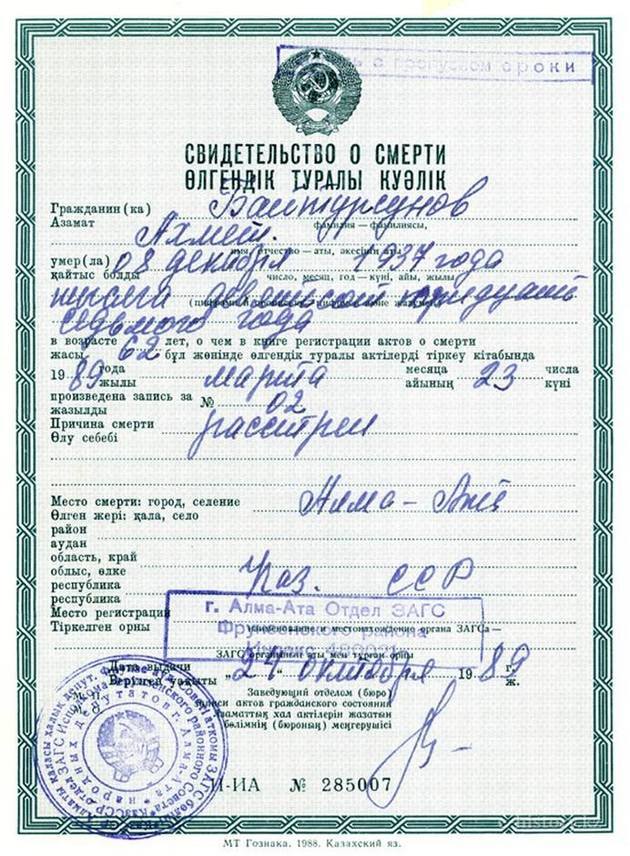 с пропуском сроки
СВИДЕТЕЛЬСТВО О СМЕРТИ
ӨЛГЕНДІК ТУРАЛЫ КУӘЛІК
Гражданин(ка) Байтурсунов
Азамат фамилия — фамилиясы,
Ахмет.
имя, отчество — аты, әкесінің аты
умер(ла) 08 декабря 1937 года
қайтыс болды число, месяц, год — күні, айы, жылы
тысяча девятьсот тридцать
седьмого года
в возрасте 62 лет, о чем в книге регистрации актов о смерти
жасы, бұл жөнінде өлгендік туралы актілерді тіркеу кітабында
19 89 года марта месяца 23 числа
жылы айының күні
произведена запись за № 02
жазылды
Причина смерти расстрел
Өлу себебі
Место смерти: город, селение Алма-Ата
Өлген жері: қала, село
район
аудан
область, край
облыс, өлке Каз. ССР
республика
республика
Место регистрации
Тіркелген орны
г. Алма-Ата Отдел ЗАГС
Фрунзенского района
наименование и местонахождение органа ЗАГСа —
ЗАГС органының аты мен тұрған орны
Дата выдачи „24“ октября 19 89 г.
Берілген уақыты ж.
Заведующий отделом (бюро)
записи актов гражданского состояния
Азаматтық хал актілерін жазатын
бөлімнің (бюроның) меңгерушісі
II-ИА № 285007
МТ Гознака. 1988. Казахский яз.